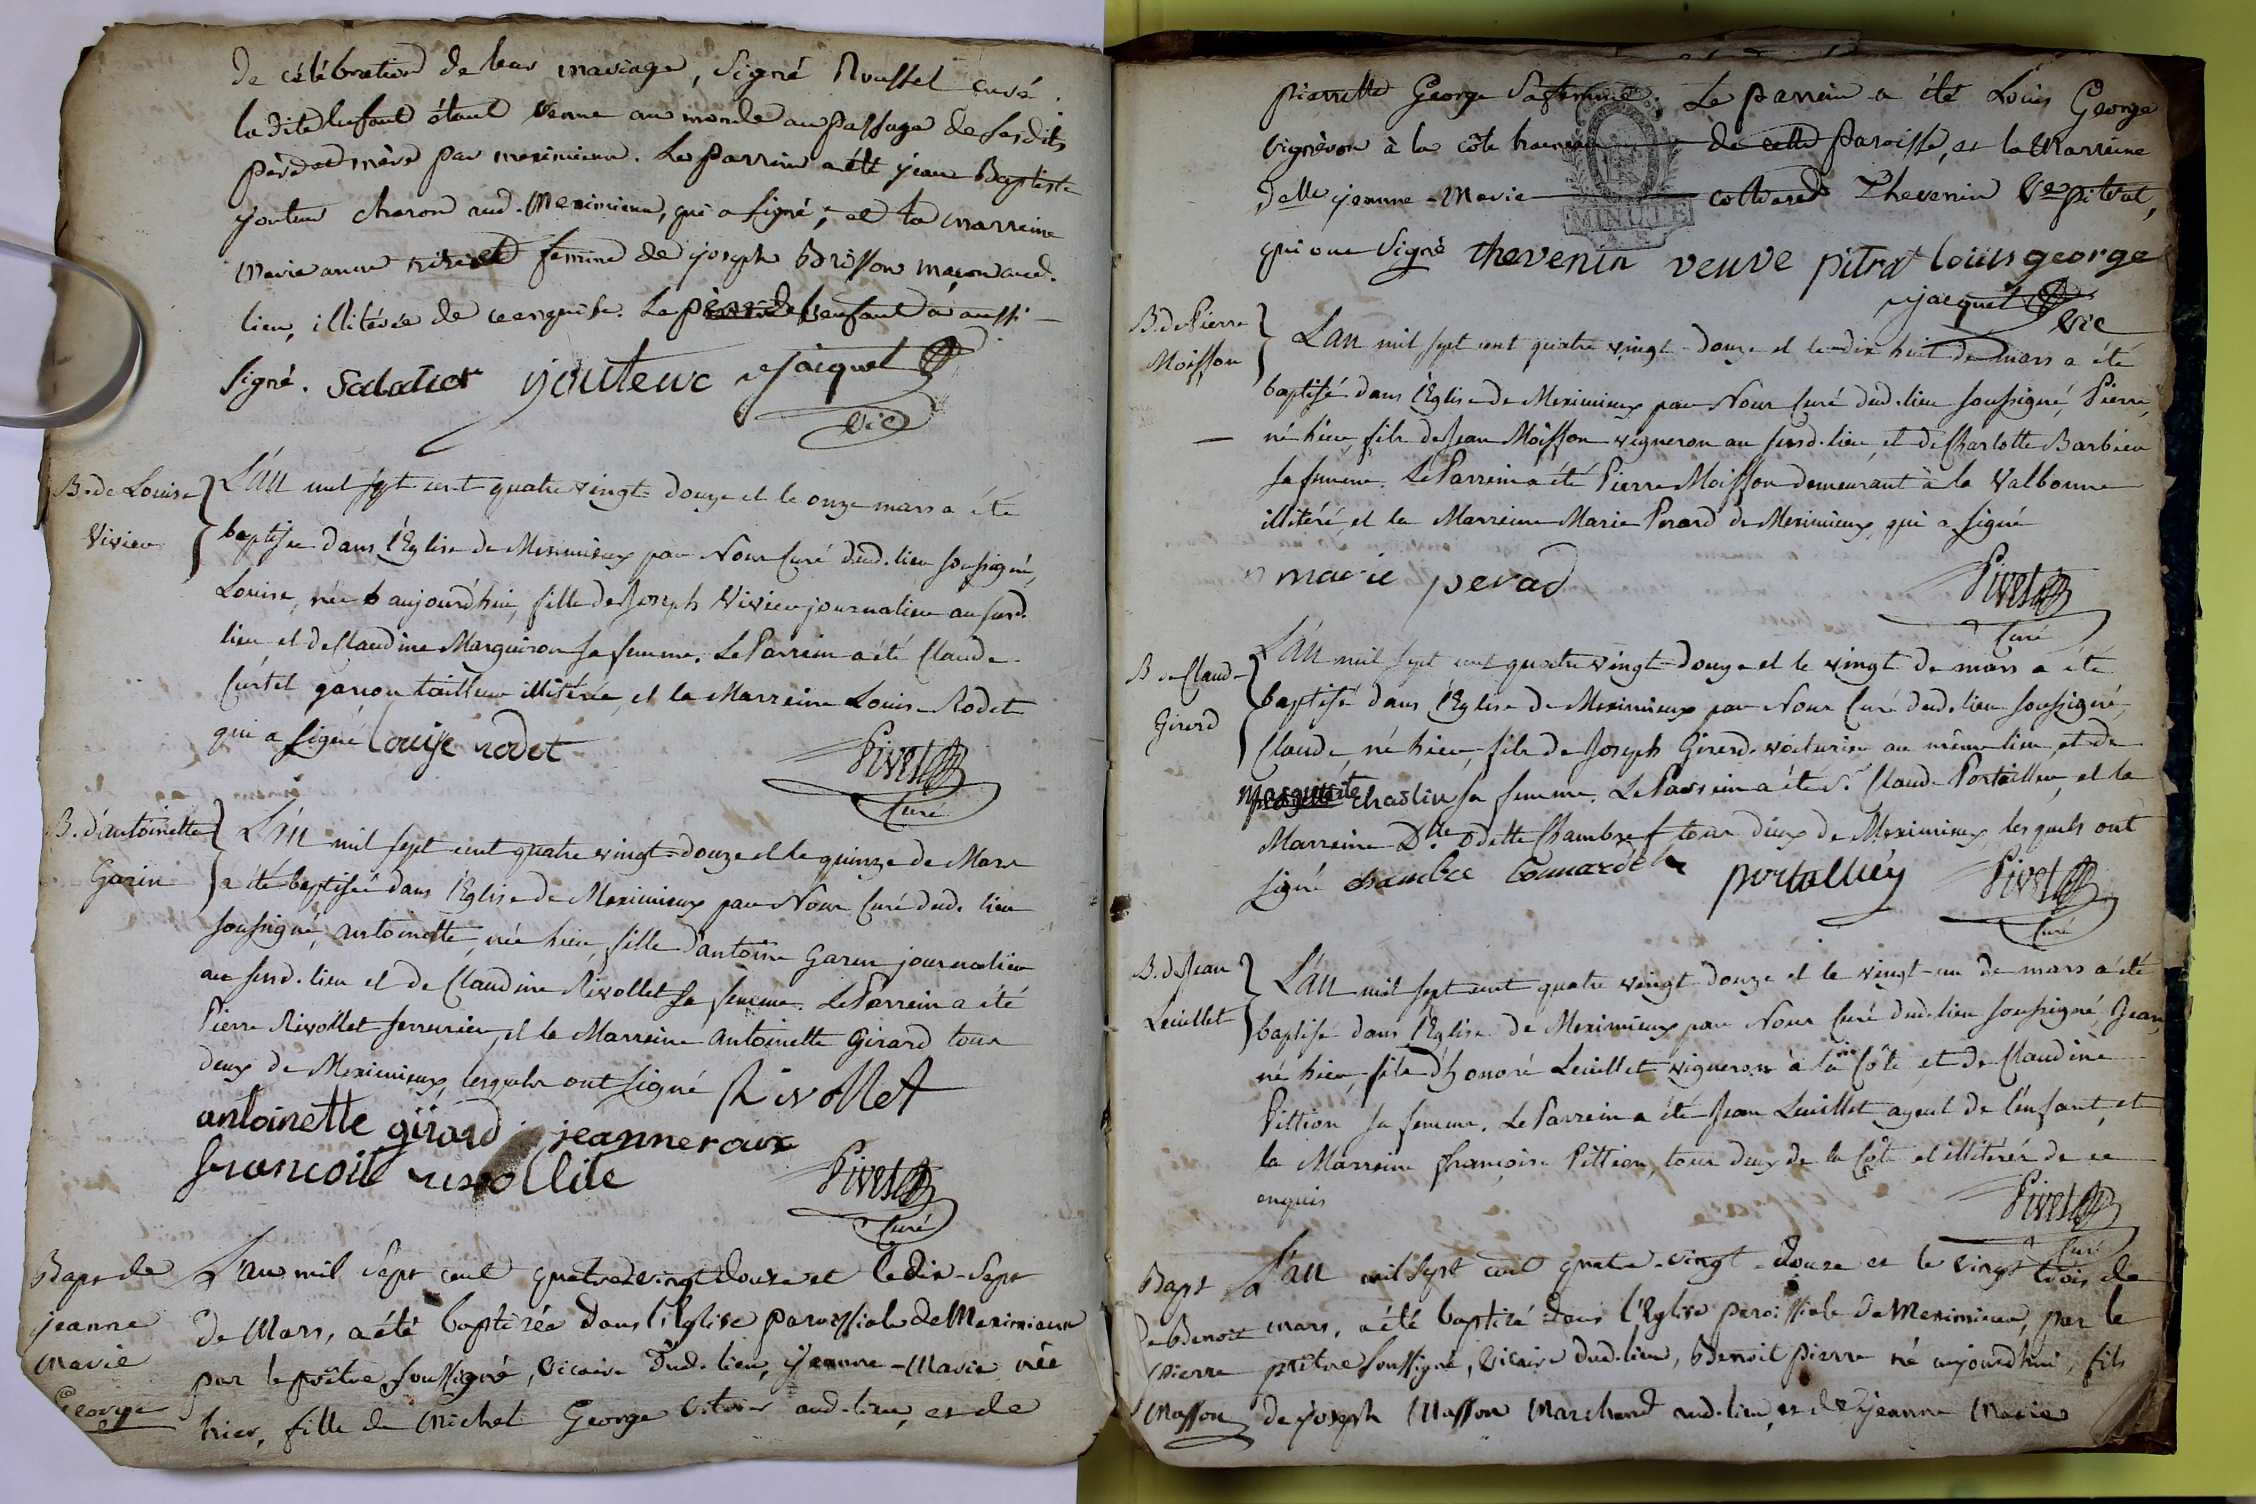 de célébration de leur mariage, Signé Roussel curé.
la dite Enfant étant venue au monde au passage de sesdits
père et mère par meximieux. Le parrein a été jean Baptiste
jouteur charon aud. Meximieux, qui a signé, et la marreine
Marie anne femme de joseph Brisson maçon aud.
lieu, illitérée de ce enquise. Le père de l'enfant a aussi
signé. jouteur jacquet
vic
B. de Louise
Vivier
L'an mil sept cent quatre vingt-douze et le onze mars a été
baptisée dans l'Eglise de Meximieux par Nous Curé dud. lieu soussigné,
Louise, née aujourd'hui, fille de Joseph Vivier journalier au susd.
lieu et de Claudine Marguiron sa femme. Le Parrein a été Claude
Curtet garçon tailleur illitérée, et la Marreine Louise Rodet
qui a signé Louise rodet
Pivet
Curé
B. d'antoinette
Garin
L'an mil sept cent quatre vingt-douze et le quinze de Mars
a été baptisée dans l'Eglise de Meximieux par Nous Curé dud. lieu
soussigné, antoinette, née hier, fille d'antoine Garin journalier
au susd. lieu et de Claudine Rivollet sa femme. Le Parrein a été
Pierre Rivollet serrurier, et la Marreine antoinette Girard tous
deux de Meximieux, lesquels ont signé Rivollet
antoinette girard jeanneraux
Pivet
Curé
Bapt de
jeanne
Marie
George
L'an mil sept cent quatre vingt douze et le dix-sept
de Mars, a été baptizée dans l'Eglise paroissiale de Meximieux
par le prêtre soussigné, vicaire dud. lieu, jeanne-Marie née
hier, fille de Michel George aud. lieu, et de
pierrette George sa femme. Le parrein a été Louis George
vigneron à la côte de cette paroisse, et la Marreine
delle jeanne-Marie Thevenin Ve pitrat,
qui ont signé thevenin veuve pitrat louis george
jacquet
vic
MINUTE
B. de Pierre
Moisson
L'an mil sept cent quatre vingt-douze et le dix huit de mars a été
baptisé dans l'Eglise de Meximieux par Nous Curé dud. lieu soussigné, Pierre,
né hier, fils de Jean Moisson vigneron au susd. lieu, et de Charlotte Barbier
sa femme. Le Parrein a été Pierre Moisson demeurant à la Valbonne
illitéré, et la Marreine Marie Perard de Meximieux, qui a signé
marie perad
Pivet
Curé
B. de Claude
Girerd
L'an mil sept cent quatre vingt-douze et le vingt de mars a été
baptisé dans l'Eglise de Meximieux par Nous Curé dud. lieu soussigné,
Claude, né hier, fils de Joseph Girerd voiturier au même lieu, et de
Marguerite sa femme. Le Parrein a été Sr. Claude Portallier, et la
Marreine Dlle Odette Chambre tous deux de Meximieux, lesquels ont
signé chambre portallier
Pivet
Curé
B. de Jean
Leuillet
L'an mil sept cent quatre vingt douze et le vingt-un de mars a été
baptisé dans l'Eglise de Meximieux par Nous Curé dud. lieu soussigné, Jean,
né hier, fils d'honoré Leuillet vigneron à la Côte, et de Claudine
Pittion sa femme. Le Parrein a été Jean Leuillet ayeul de l'enfant, et
la Marreine françoise Pittion, tous deux de la Côte et illitérés de ce
enquis
Pivet
Curé
Bapt
De Benoit
pierre
Masson
L'an mil sept cent quatre-vingt-douze et le vingt trois de
mars, a été baptizé dans l'Eglise paroissiale de Meximieux, par le
prêtre soussigné, vicaire dud. lieu, Benoit pierre né aujourdhui, fils
de joseph Masson Marchand aud. lieu, et de jeanne Marie